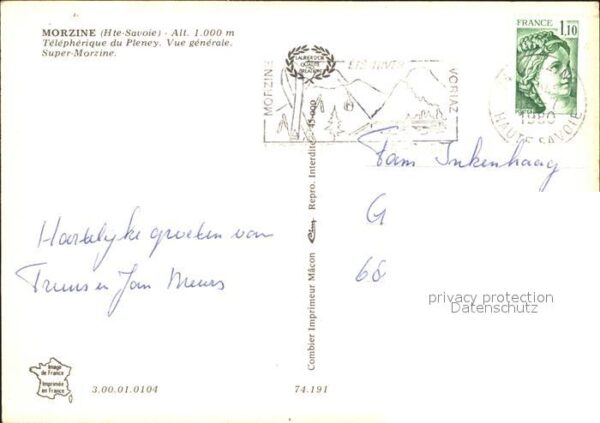 MORZINE (Hte-Savoie) - Alt. 1.000 m
Téléphérique du Pleney. Vue générale.
Super-Morzine.
MORZINE
LAURIER D'OR
QUALITE
CREATION
ETE-HIVER
AVORIAZ
FRANCE 1,10
1980
HAUTE SAVOIE
Fam Inkenhaag
G
68
Hartelijke groeten van
Truus en Jan Meurs
privacy protection
Datenschutz
Combier Imprimeur Mâcon Cim Repro. Interdite 45-000
Image
de France
Imprimée
en France
3.00.01.0104
74.191